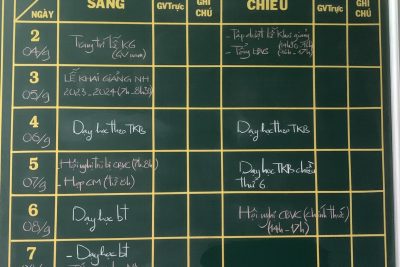 NGÀY SÁNG GVTrực GHI CHÚ CHIỀU GVTrực GHI CHÚ
2 04/9 Trang trí lễ KG
- Tập dượt lễ khai giảng
- Tổng
(14h - 17h)
3 05/9 LỄ KHAI GIẢNG NH
2023-2024 (7h-8h30)
4 06/9 Dạy học theo TKB Dạy học theo TKB
5 07/9 - Hội nghị trù bị CBVC (7h-8h)
- Họp CM (từ 8h)
Dạy học TKB chiều
thứ 6
6 08/9 Dạy học bt Hội nghị CBVC (chính thức)
(14h - 17h)
7 - Dạy học bt